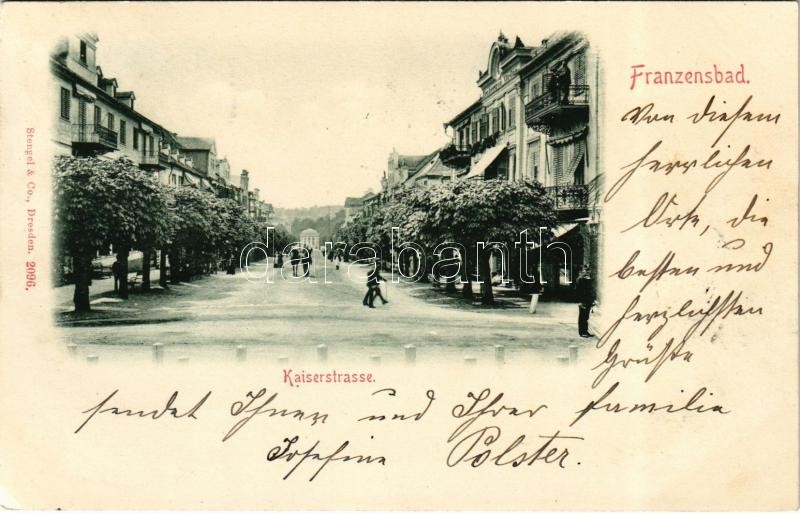 Franzensbad.
Von diesem
herrlichen
Orte, die
besten und
herzlichsten
Grüße
sendet Ihnen und Ihrer Familie
Josefine Polster.
Kaiserstrasse.
Stengel & Co., Dresden. 2096.
darabanth